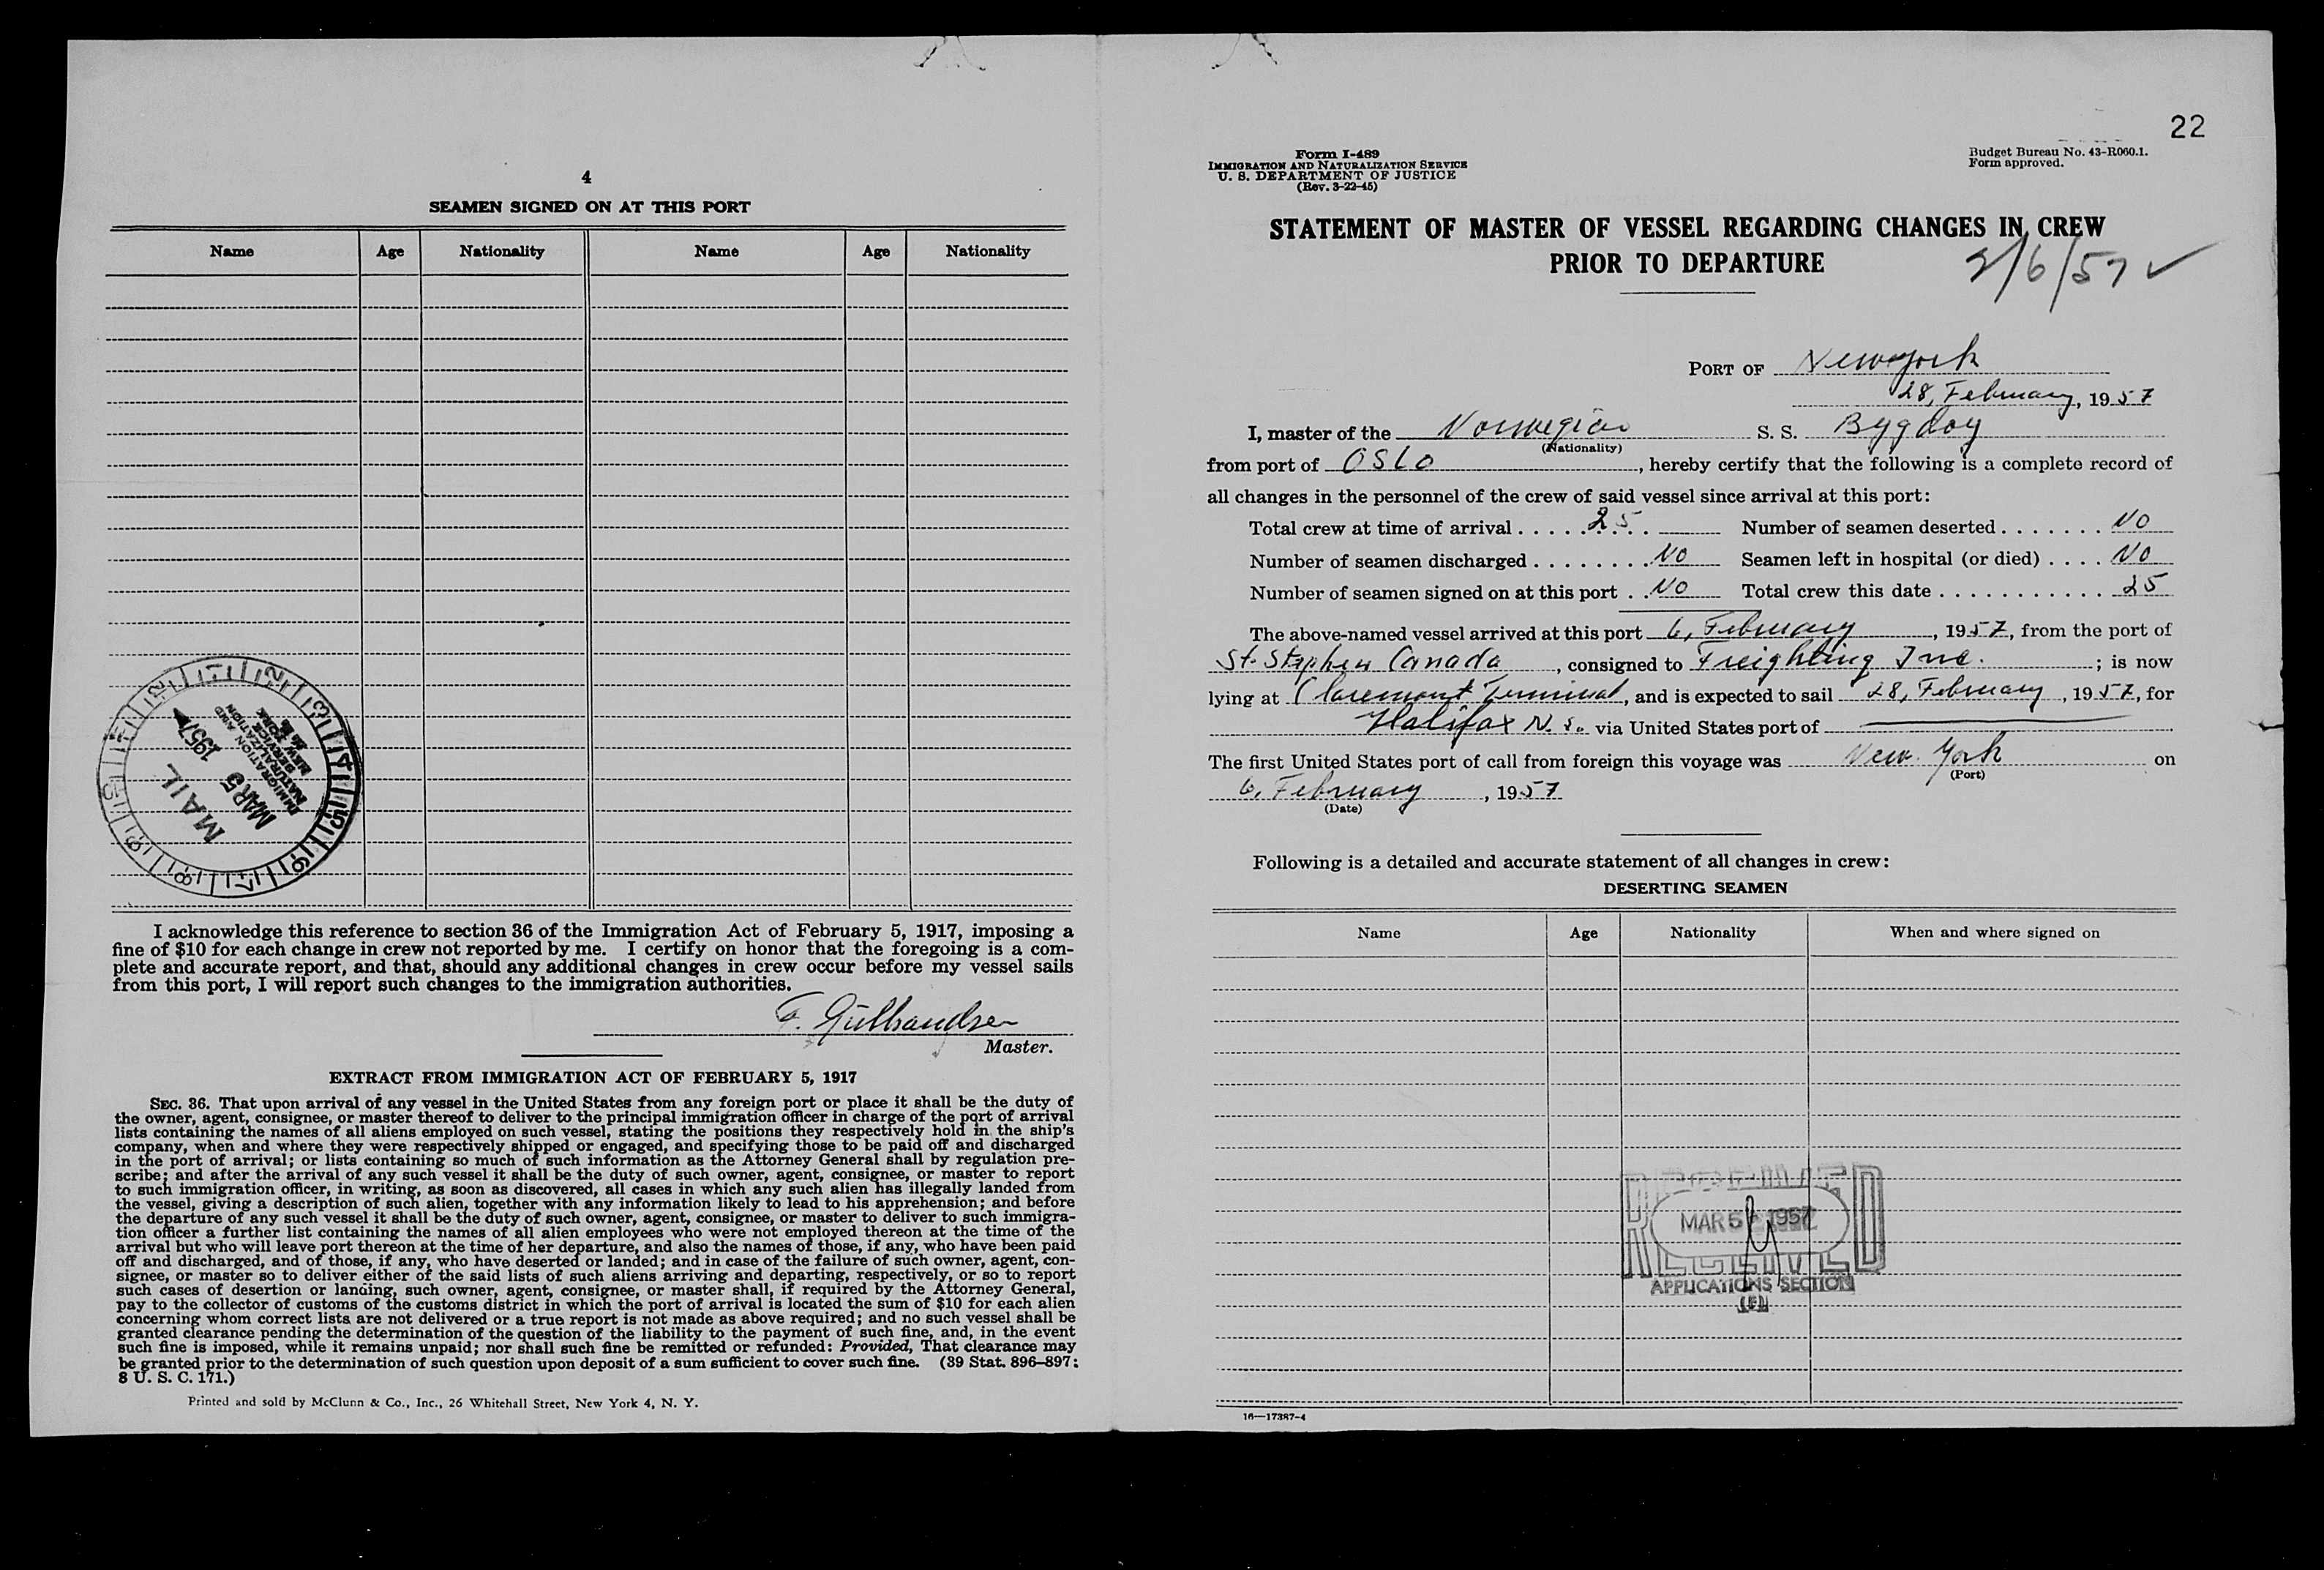 4
SEAMEN SIGNED ON AT THIS PORT
Name Age Nationality Name Age Nationality
MAIL
MAR 5 1957
IMMIGRATION AND
NATURALIZATION
SERVICE
NEW YORK
I acknowledge this reference to section 36 of the Immigration Act of February 5, 1917, imposing a
fine of $10 for each change in crew not reported by me. I certify on honor that the foregoing is a com-
plete and accurate report, and that, should any additional changes in crew occur before my vessel sails
from this port, I will report such changes to the immigration authorities.
Master.
EXTRACT FROM IMMIGRATION ACT OF FEBRUARY 5, 1917
SEC. 36. That upon arrival of any vessel in the United States from any foreign port or place it shall be the duty of
the owner, agent, consignee, or master thereof to deliver to the principal immigration officer in charge of the port of arrival
lists containing the names of all aliens employed on such vessel, stating the positions they respectively hold in the ship's
company, when and where they were respectively shipped or engaged, and specifying those to be paid off and discharged
in the port of arrival; or lists containing so much of such information as the Attorney General shall by regulation pre-
scribe; and after the arrival of any such vessel it shall be the duty of such owner, agent, consignee, or master to report
to such immigration officer, in writing, as soon as discovered, all cases in which any such alien has illegally landed from
the vessel, giving a description of such alien, together with any information likely to lead to his apprehension; and before
the departure of any such vessel it shall be the duty of such owner, agent, consignee, or master to deliver to such immigra-
tion officer a further list containing the names of all alien employees who were not employed thereon at the time of the
arrival but who will leave port thereon at the time of her departure, and also the names of those, if any, who have been paid
off and discharged, and of those, if any, who have deserted or landed; and in case of the failure of such owner, agent, con-
signee, or master so to deliver either of the said lists of such aliens arriving and departing, respectively, or so to report
such cases of desertion or landing, such owner, agent, consignee, or master shall, if required by the Attorney General,
pay to the collector of customs of the customs district in which the port of arrival is located the sum of $10 for each alien
concerning whom correct lists are not delivered or a true report is not made as above required; and no such vessel shall be
granted clearance pending the determination of the question of the liability to the payment of such fine, and, in the event
such fine is imposed, while it remains unpaid; nor shall such fine be remitted or refunded: Provided, That clearance may
be granted prior to the determination of such question upon deposit of a sum sufficient to cover such fine. (39 Stat. 896–897;
8 U. S. C. 171.)
Printed and sold by McClunn & Co., Inc., 26 Whitehall Street, New York 4, N. Y.
22
Form I-489
IMMIGRATION AND NATURALIZATION SERVICE
U. S. DEPARTMENT OF JUSTICE
(Rev. 3-22-45)
Budget Bureau No. 43-R060.1.
Form approved.
STATEMENT OF MASTER OF VESSEL REGARDING CHANGES IN CREW
PRIOR TO DEPARTURE
2/6/57 ✓
PORT OF New York
28, February, 1957
I, master of the Norwegian S. S. Bygdoy
(Nationality)
from port of OSLO, hereby certify that the following is a complete record of
all changes in the personnel of the crew of said vessel since arrival at this port:
Total crew at time of arrival . . . . . . . . 25 Number of seamen deserted . . . . . . . NO
Number of seamen discharged . . . . . . . . NO Seamen left in hospital (or died) . . . . NO
Number of seamen signed on at this port . . NO Total crew this date . . . . . . . . . . . 25
The above-named vessel arrived at this port 6, February, 1957, from the port of
St. Stephen Canada, consigned to Freighting Inc. ; is now
lying at Claremont Terminal, and is expected to sail 28, February, 1957, for
Halifax N. S. via United States port of
The first United States port of call from foreign this voyage was New York on
(Port)
6, February, 1957
(Date)
Following is a detailed and accurate statement of all changes in crew:
DESERTING SEAMEN
Name Age Nationality When and where signed on
RECEIVED
MAR 5 1957
RECEIVED
APPLICATIONS SECTION
16—17387-4